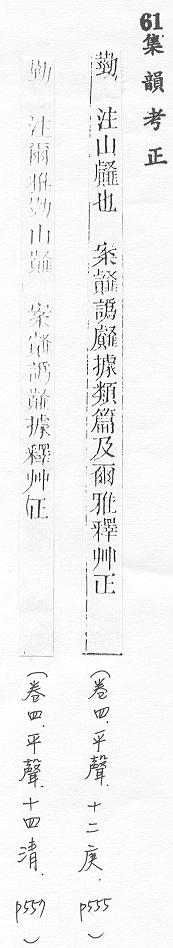 61.集韻考正
勍 注山䪥也 案䪥譌䪥據類篇及爾雅釋艸正
(卷四.平聲.十二庚.p555)
勍 注爾雅勍山䪥 案䪥譌䪥據釋艸正
(卷四.平聲.十四清.p557)